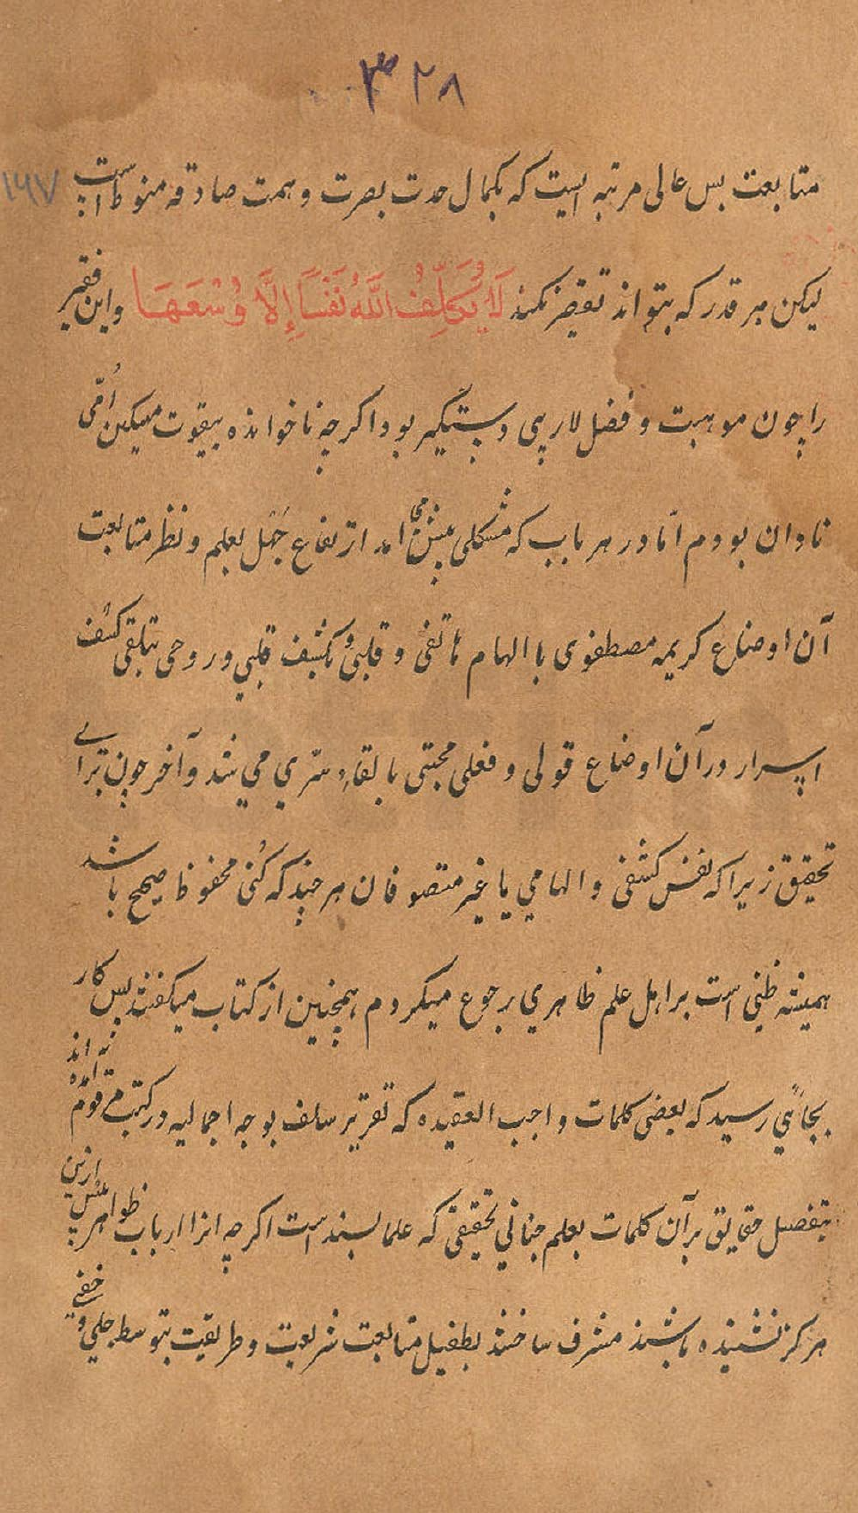 ٣٢٨
١٦٧
متابعت بس عالی مرتبه ایست که بکمال حدت بصرت وهمت صادقه منوط است
لیکن هر قدر که بتواند تقصیر نکند لَا یُکَلِّفُ اللَّهُ نَفْسًا إِلَّا وُسْعَهَا واین فقیر
را چون موهبت و فضل لاریبی دستگیر بود اکرچه ناخوانده بیقوت مسکین اُمّی
نادان بودم امّا در هر باب که مشکلی پیش می امد ارتفاع جَهْل بعلم و نظر متابعت
آن اوضاع کریمه مصطفوی با الهام هاتفی و قلبی و بکشف قلبي و روحی بتلقی کشف
اسرار در آن اوضاع قولی و فعلی مجتبی بالقاءِ سرّي مي شد و آخر چون برای
تحقیق زیرا که نفس کشفی و الهامي یا غیر متصوفان هر چند که کُنی محفوظ صحیح باشد
همیشه ظنّي است بر اهل علم ظاهري رجوع میکردم همچنین از کتاب میکفتند پس کار
بجائي رسید که بعضی کلمات واجب العقیده که تقریر سلف بوجه اجمالیه در کتب مرقوم نه اند
بتفصیل حقایق برآن کلمات بعلم جناني تحقیقی که علما بسند است اکرچه انرا ارباب ظواهر پیش ازین
هرکز نشنیده باشند مشرف ساختند بطفیل متابعت شریعت و طریقت بتوسط جلي و خفي